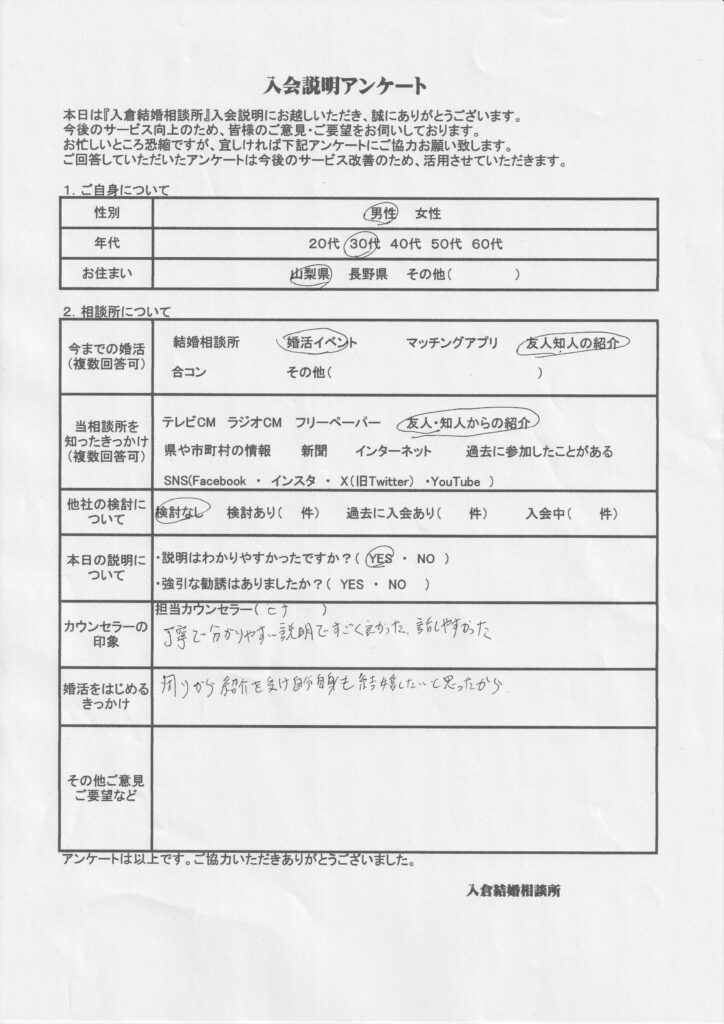 入会説明アンケート
本日は『入倉結婚相談所』入会説明にお越しいただき、誠にありがとうございます。
今後のサービス向上のため、皆様のご意見・ご要望をお伺いしております。
お忙しいところ恐縮ですが、宜しければ下記アンケートにご協力お願い致します。
ご回答していただいたアンケートは今後のサービス改善のため、活用させていただきます。
1. ご自身について
性別 男性 女性
年代 20代 30代 40代 50代 60代
お住まい 山梨県 長野県 その他( )
2. 相談所について
今までの婚活
(複数回答可)
結婚相談所 婚活イベント マッチングアプリ 友人知人の紹介
合コン その他( )
当相談所を
知ったきっかけ
(複数回答可)
テレビCM ラジオCM フリーペーパー 友人・知人からの紹介
県や市町村の情報 新聞 インターネット 過去に参加したことがある
SNS(Facebook ・ インスタ ・ X(旧Twitter) ・YouTube )
他社の検討に
ついて
検討なし 検討あり( 件) 過去に入会あり( 件) 入会中( 件)
本日の説明に
ついて
・説明はわかりやすかったですか?( YES ・ NO )
・強引な勧誘はありましたか?( YES ・ NO )
カウンセラーの
印象
担当カウンセラー( ヒナ )
丁寧で分かりやすい説明ですごく良かった、話しやすかった
婚活をはじめる
きっかけ
周りから紹介を受け自分自身も結婚したいと思ったから
その他ご意見
ご要望など
アンケートは以上です。ご協力いただきありがとうございました。
入倉結婚相談所